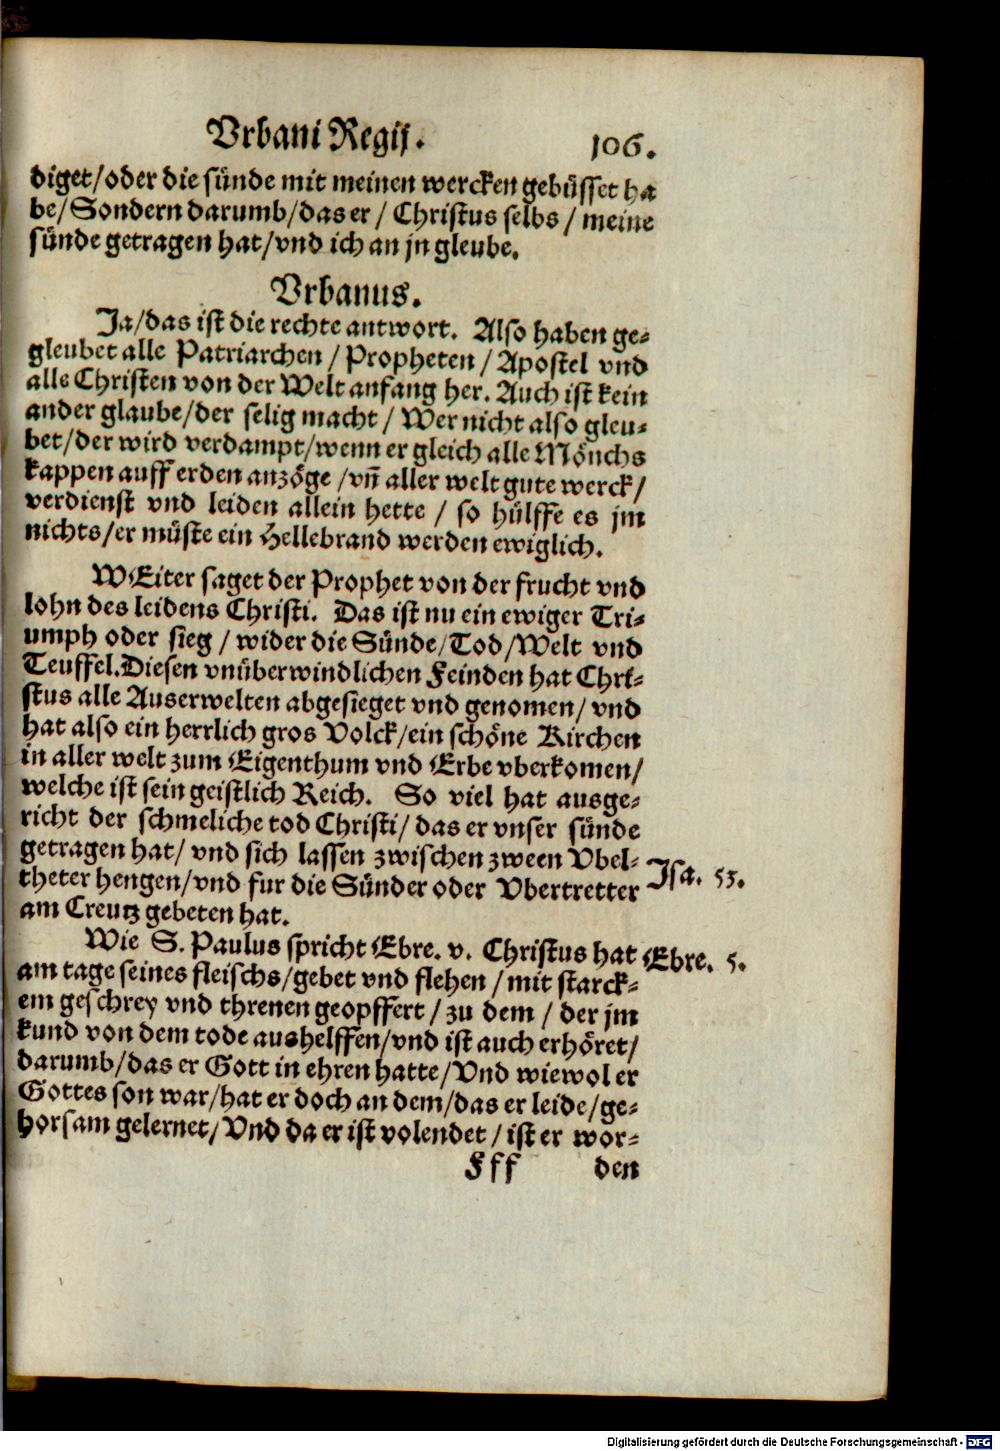 Vrbani Regij.
106.
diget/oder die sünde mit meinen wercken gebüsset ha
be/Sondern darumb/das er / Christus selbs / meine
sünde getragen hat/vnd ich an jn gleube.
Vrbanus.
Ja/das ist die rechte antwort. Also haben ge-
gleubet alle Patriarchen / Propheten / Apostel vnd
alle Christen von der Welt anfang her. Auch ist kein
ander glaube/der selig macht / Wer nicht also gleu-
bet/der wird verdampt/wenn er gleich alle Mönchs
kappen auff erden anzöge /vn̄ aller welt gute werck/
verdienst vnd leiden allein hette / so hülffe es jm
nichts/er müste ein Hellebrand werden ewiglich.
WEiter saget der Prophet von der frucht vnd
lohn des leidens Christi. Das ist nu ein ewiger Tri-
umph oder sieg / wider die Sünde/Tod/Welt vnd
Teuffel.Diesen vnüberwindlichen Feinden hat Chri-
stus alle Auserwelten abgesieget vnd genomen/ vnd
hat also ein herrlich gros Volck/ein schöne Kirchen
in aller welt zum Eigenthum vnd Erbe vberkomen/
welche ist sein geistlich Reich. So viel hat ausge-
richt der schmeliche tod Christi/ das er vnser sünde
getragen hat/ vnd sich lassen zwischen zween Vbel-
theter hengen/vnd fur die Sünder oder Vbertretter
am Creutz gebeten hat.
Isa. 53.
Wie S. Paulus spricht Ebre. v. Christus hat
Ebre. 5.
am tage seines fleischs/gebet vnd flehen / mit starck-
em geschrey vnd threnen geopffert / zu dem / der jm
kund von dem tode aushelffen/vnd ist auch erhöret/
darumb/das er Gott in ehren hatte/Vnd wiewol er
Gottes son war/hat er doch an dem/das er leide/ge-
horsam gelernet/Vnd da er ist volendet / ist er wor-
Fff den
Digitalisierung gefördert durch die Deutsche Forschungsgemeinschaft - DFG